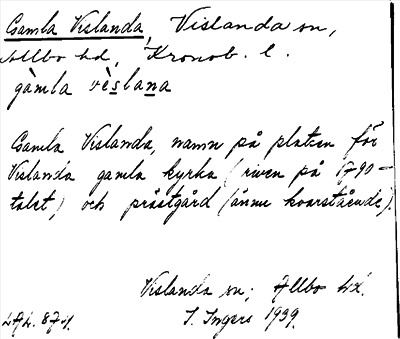 Gamla Vislanda, Vislanda sn,
Allbo hd, Kronob. l.
gàmla vèslana
Gamla Vislanda, namn på platsen för
Vislanda gamla kyrka (riven på 1790-
talet) och prästgård (ännu kvarstående).
Vislanda sn; Allbo hd.
I. Ingers 1939.